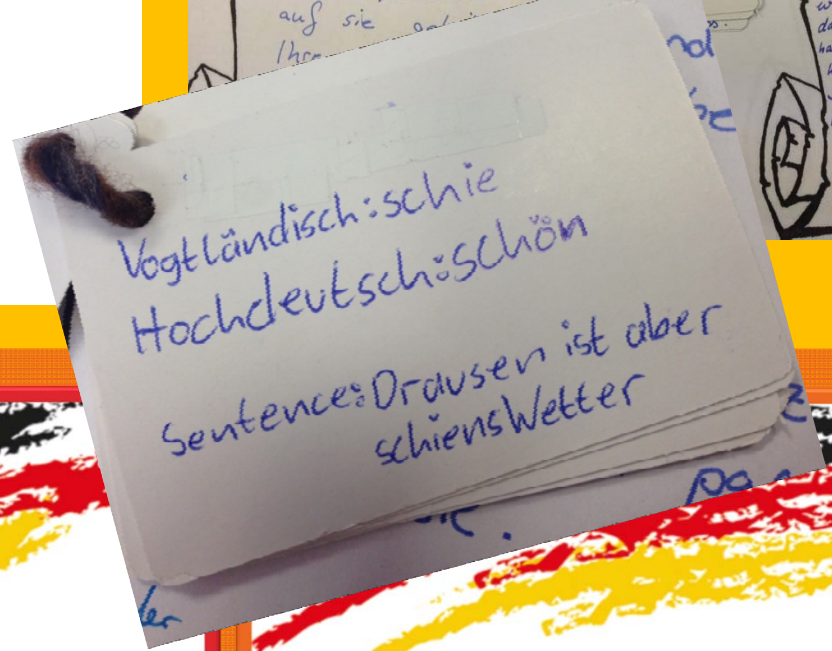 auf sie
Ihre
Vogtländisch:schie
Hochdeutsch:schön
Sentence:Drausen ist aber
schiensWetter